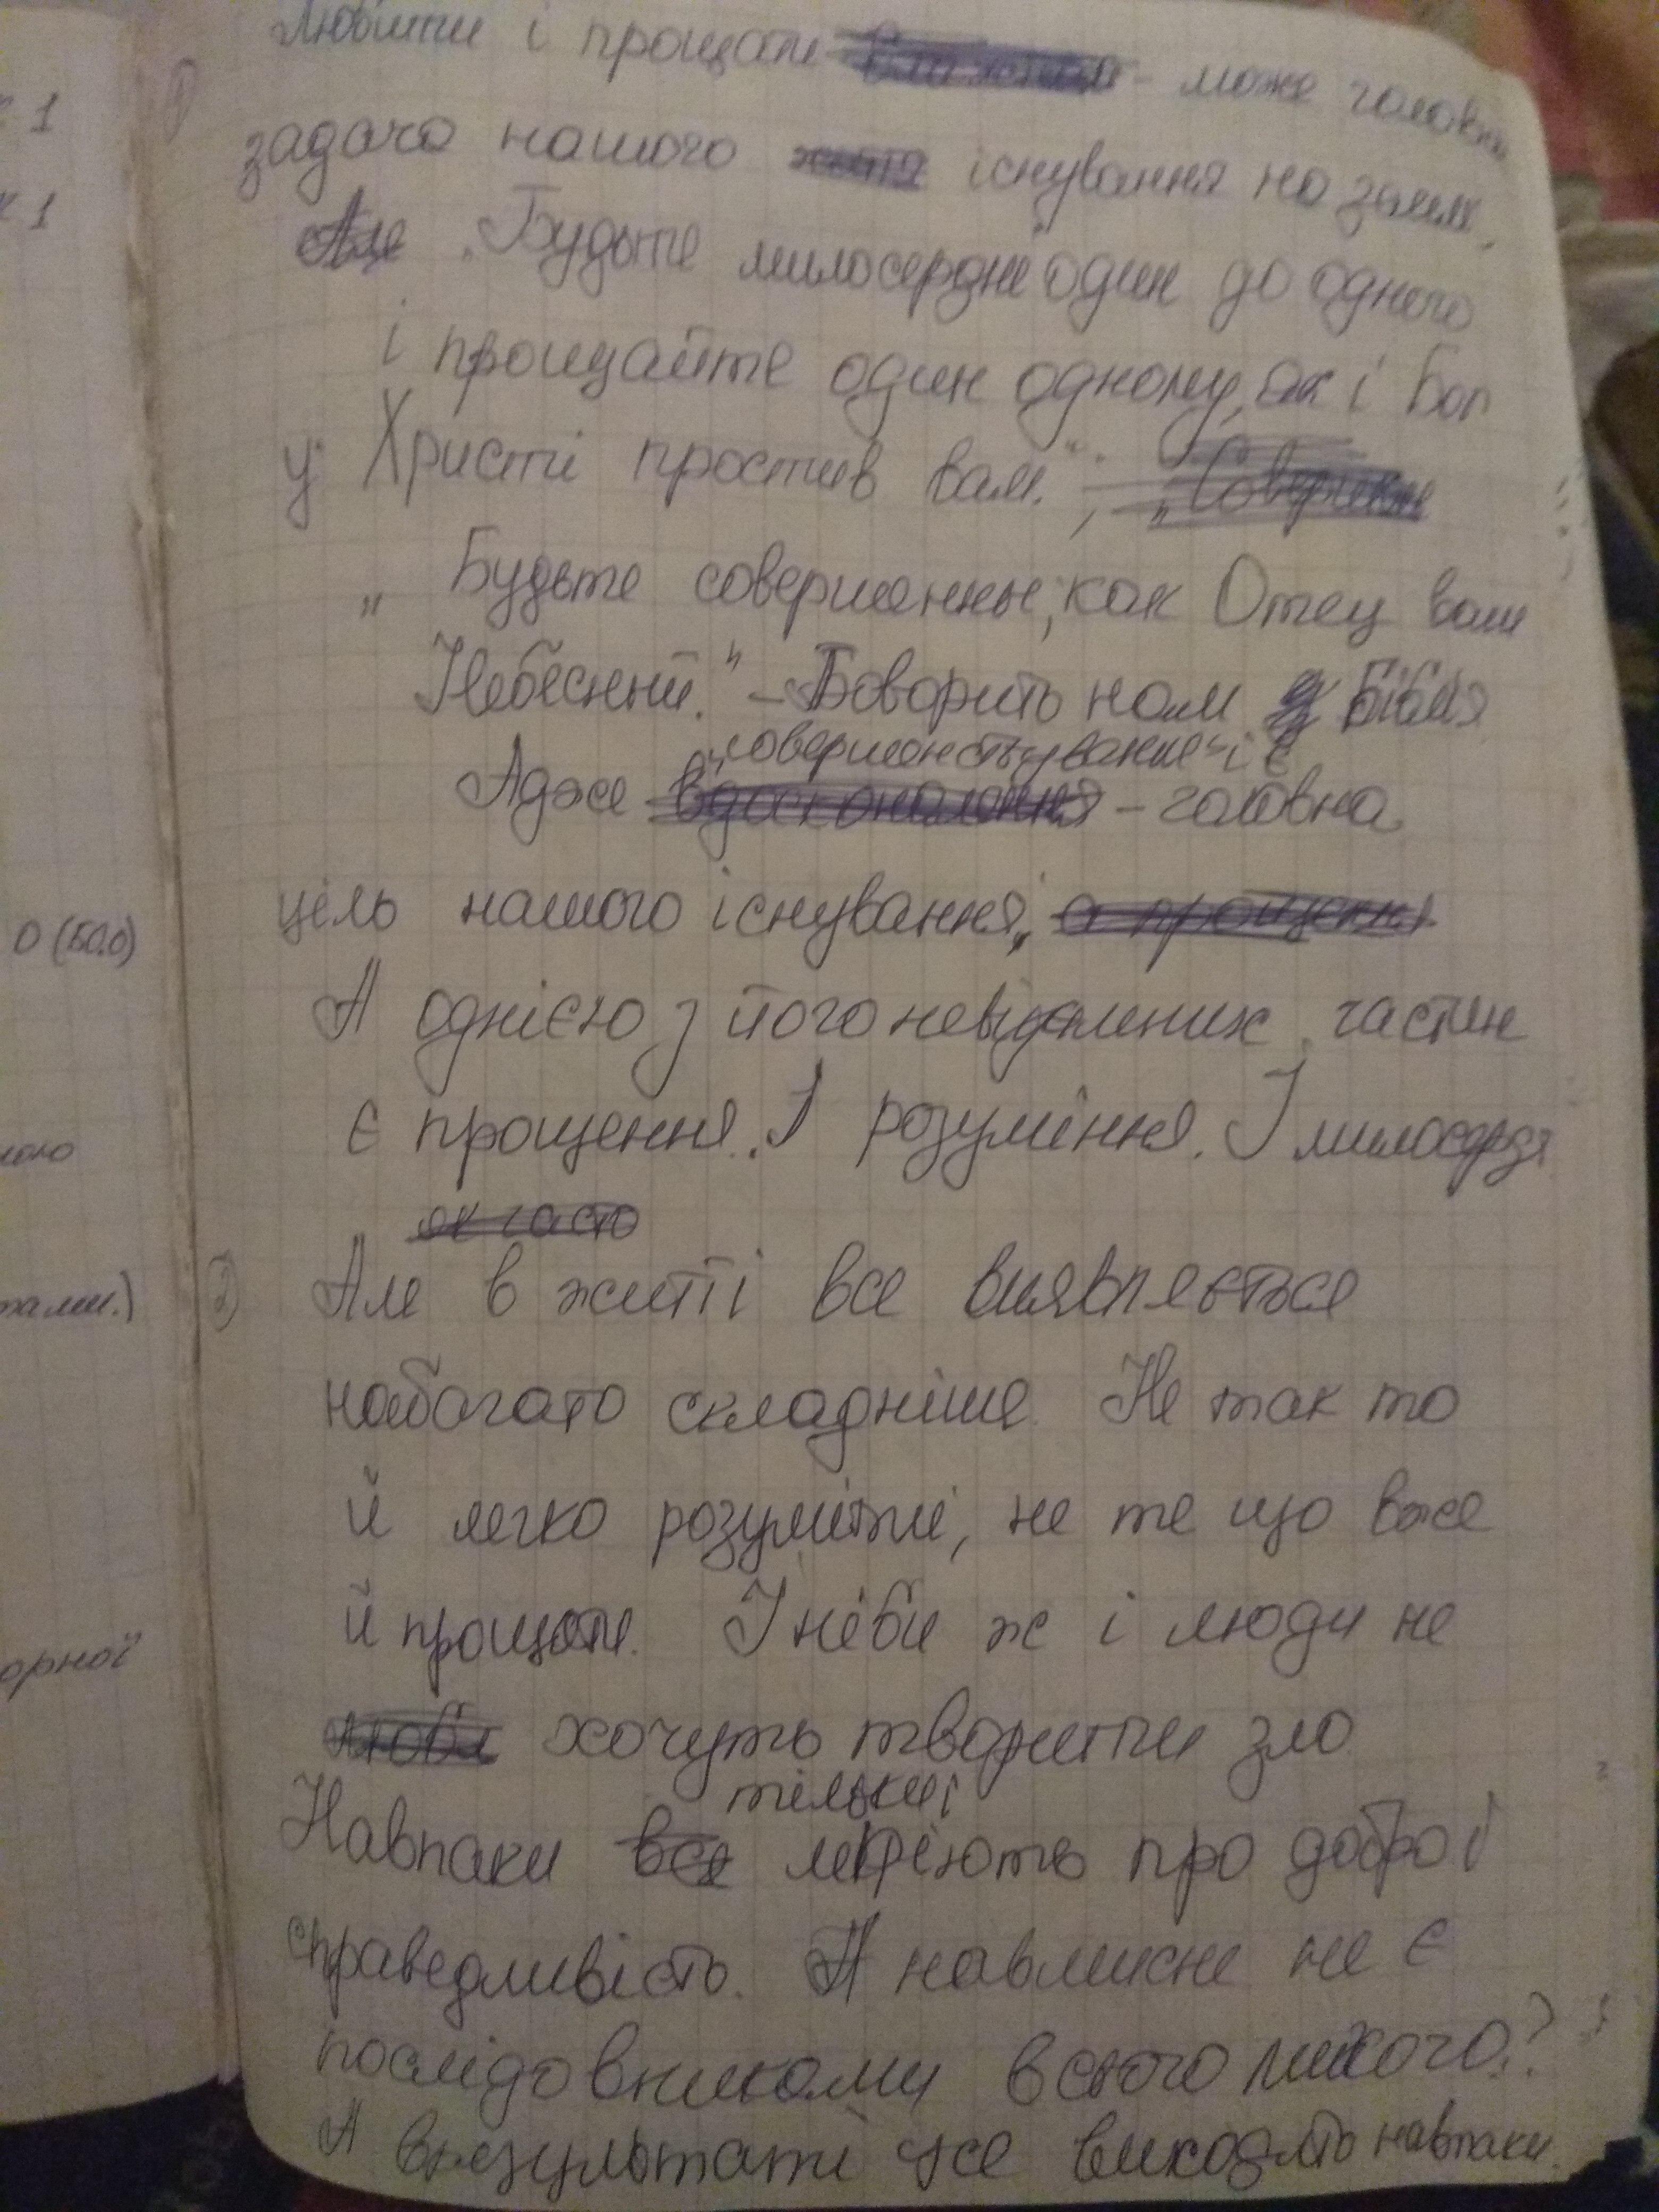 Любити і прощати - може головна
1) задача нашого існування на землі.
"Будьте милосердні один до одного
і прощайте один одному, як і Бог
у Христі простив вам."
„Будьте совершенны, как Отец ваш
Небесный." – Говорить нам Біблія
„совершенствування" і є
Адже – головна
ціль нашого існування.
А однією з його невід'ємних частин
є прощення. І розуміння. І милосердя
як часто
2) Але в житті все виявляється
набагато складніше. Не так то
й легко розуміти, не те що вже
й прощати. І ніби ж і люди не
хочуть творити зло
тільки і
Навпаки все мріють про добро і
справедливість. А навмисне не є
послідовниками всього лихого?
А в результаті усе виходить навпаки.
к 1
к 1
0 (Б0.0)
ною
тами.)
орної